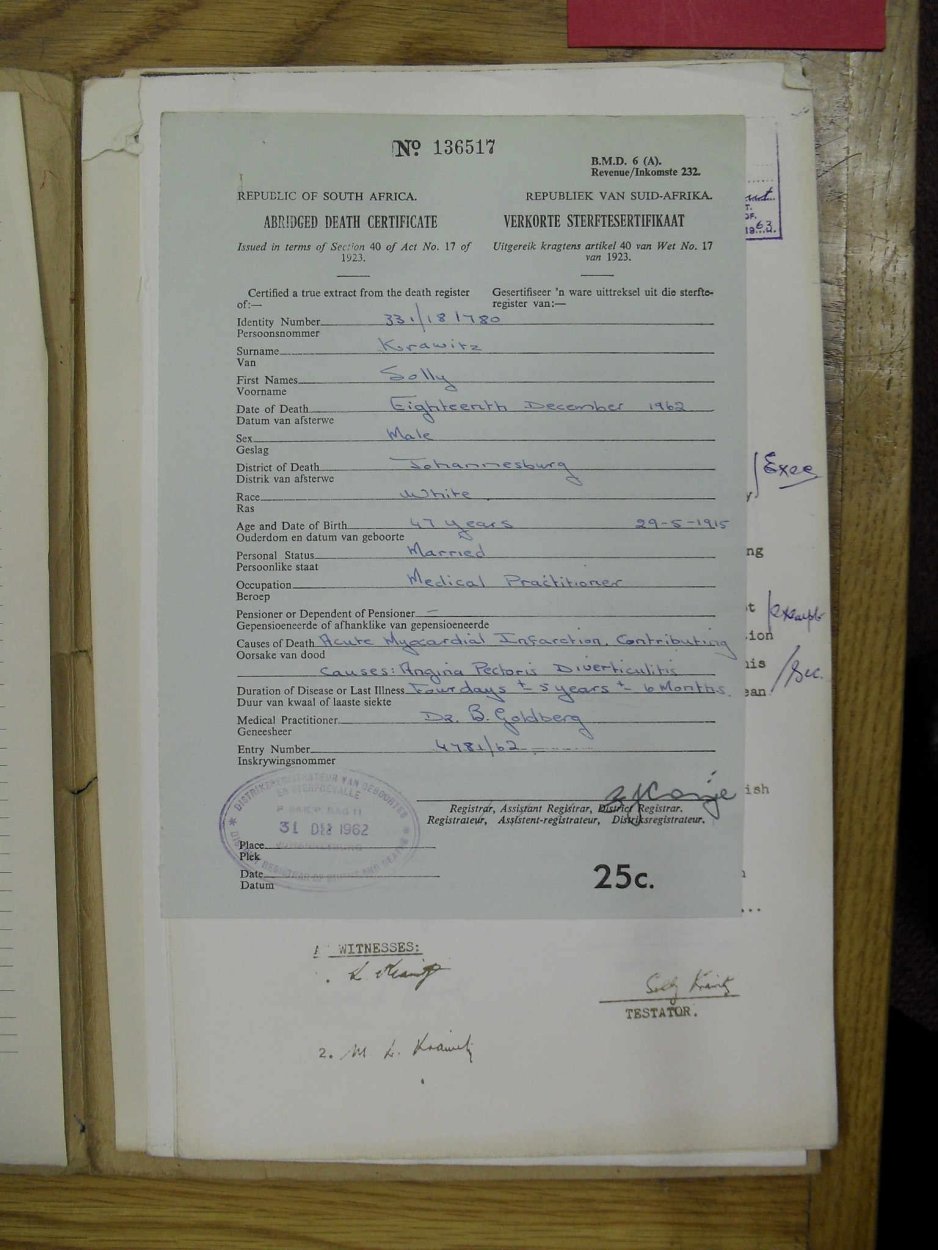 No 136517
B.M.D. 6 (A).
Revenue/Inkomste 232.
REPUBLIC OF SOUTH AFRICA. REPUBLIEK VAN SUID-AFRIKA.
ABRIDGED DEATH CERTIFICATE VERKORTE STERFTESERTIFIKAAT
Issued in terms of Section 40 of Act No. 17 of 1923. Uitgereik kragtens artikel 40 van Wet No. 17 van 1923.
Certified a true extract from the death register of:— Gesertifiseer 'n ware uittreksel uit die sterfte-register van:—
Identity Number 331/181780
Persoonsnommer
Surname Krawitz
Van
First Names Solly
Voorname
Date of Death Eighteenth December 1962
Datum van afsterwe
Sex Male
Geslag
District of Death Johannesburg
Distrik van afsterwe
Race White
Ras
Age and Date of Birth 47 years 29-5-1915
Ouderdom en datum van geboorte
Personal Status Married
Persoonlike staat
Occupation Medical Practitioner
Beroep
Pensioner or Dependent of Pensioner –
Gepensioeneerde of afhanklike van gepensioeneerde
Causes of Death Acute Myocardial Infarction. Contributing
Oorsake van dood
causes: Angina Pectoris Diverticulitis
Duration of Disease or Last Illness Four days ± 5 years ± 6 Months.
Duur van kwaal of laaste siekte
Medical Practitioner Dr. B. Goldberg
Geneesheer
Entry Number 4781/62
Inskrywingsnommer
Registrar, Assistant Registrar, District Registrar.
Registrateur, Assistent-registrateur, Distriksregistrateur.
DISTRIKSREGISTRATEUR VAN GEBOORTES
EN STERFGEVALLE
31 DEC 1962
JOHANNESBURG
Place
Plek
Date
Datum
25c.
Exec
ng
exempt
ion
his
ean
Sec.
ish
WITNESSES:
Solly Krawitz
TESTATOR.
2. M. L. Krawitz